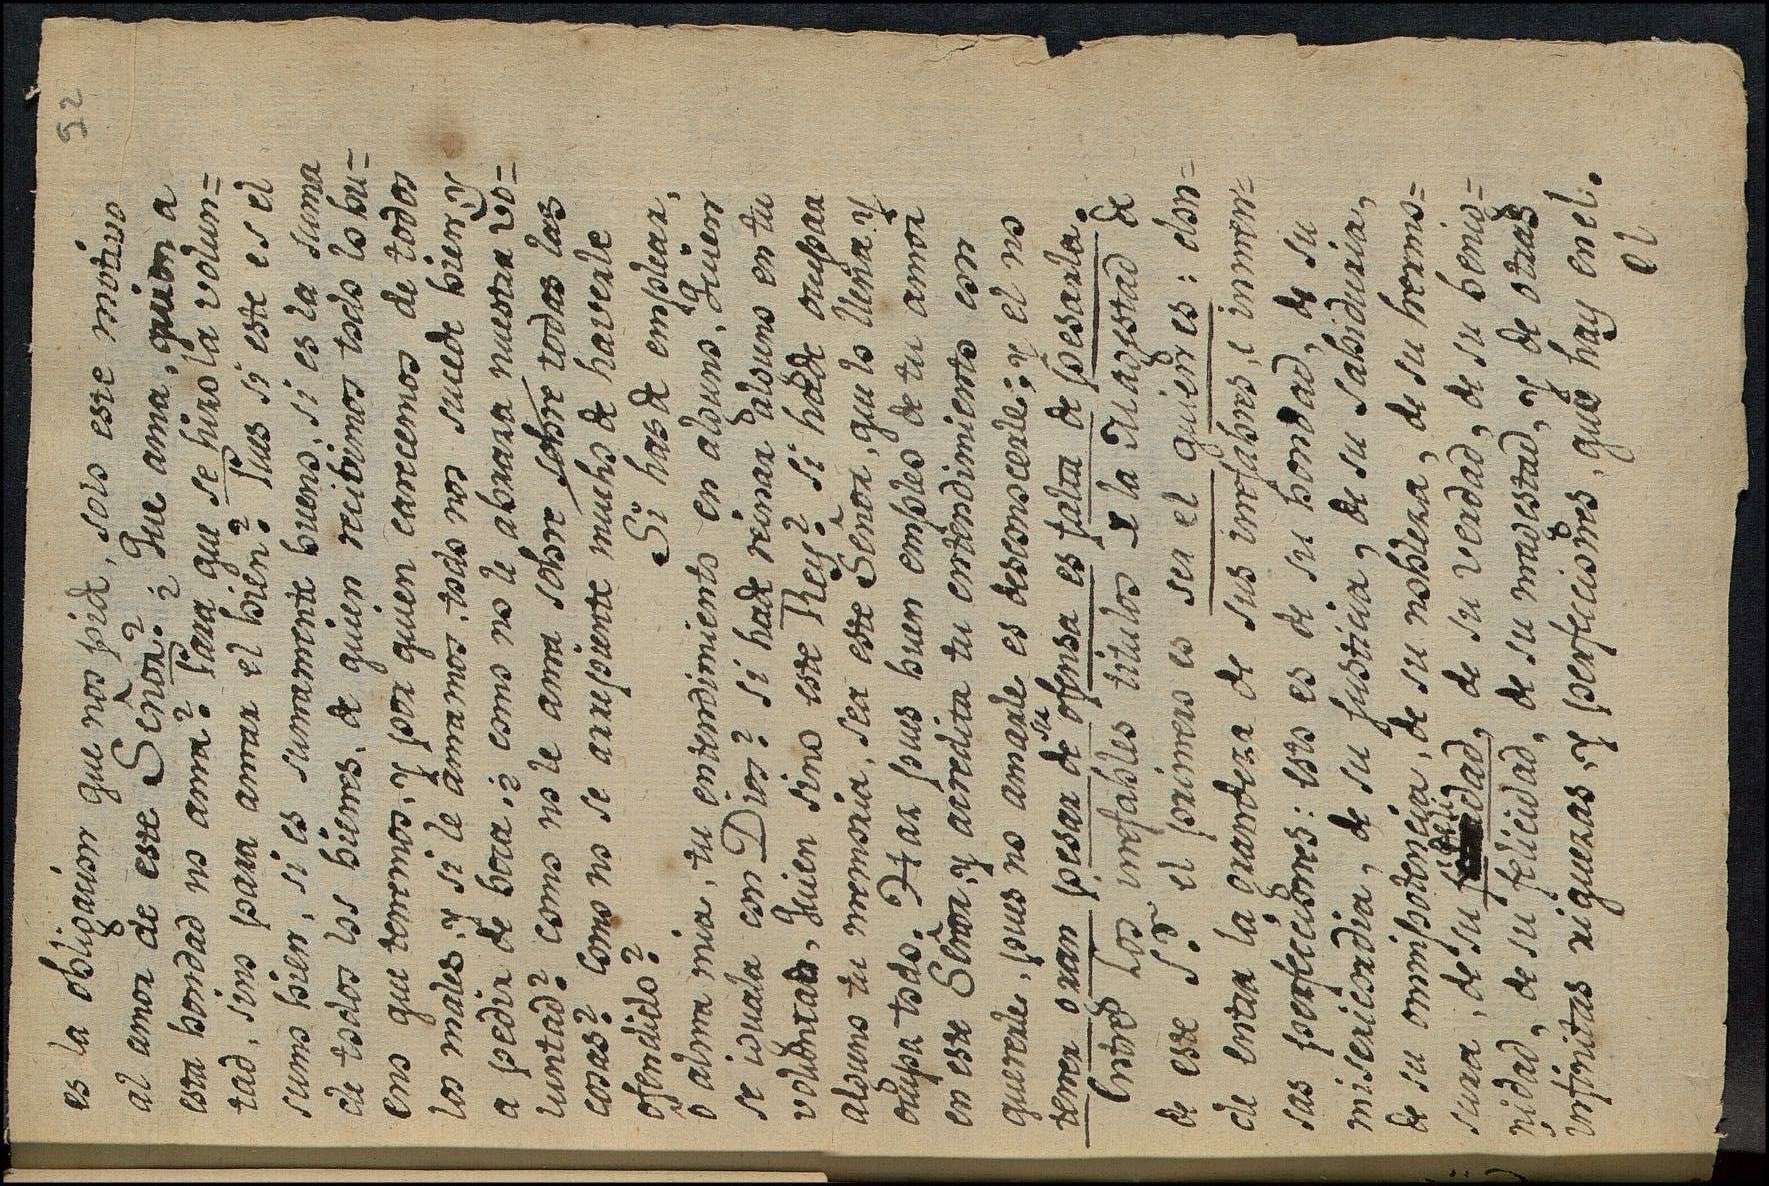 52
es la obligacion que nos pide, solo este motivo
al amor de este Señor? ¿Que ama, quien a
esta bondad no ama? Para que se hizo la volun=
tad, sino para amar el bien? Pues si este es el
sumo bien, si es sumamente bueno, si es la suma
de todos los bienes, de quien recibimos todo lo bu=
eno que tenemos, y por quien carecemos de todos
los males, y si le amamos, todo nos sucede bien, y
a pedir de boca, ¿como no le abraza nuestra vo=
luntad? como no le ama sobre sobre todas las
cosas? como no se arrepiente mucho de haverle
ofendido? Si has de emplear,
o alma mia, tu entendimiento en alguno, Quien
se iguala con Dios? si hade reinar alguno en tu
voluntad, Quien sino este Rey? si hade ocupar
alguno tu memoria, sea este Señor, que lo llena y
ocupa todo. Haz pues buen empleo de tu amor
en este Señor, y acredita tu entendimiento con
quererle, pues no amarle es desconocerle; y el no
tener gran pesar de su ofensa es falta de pesarla.
Entre los inefables titulos de la Magestad de
de este Sr. el primero es ser el quien es: don=
de entra la grandeza de sus inefables, e inmen=
sas perfecciones: esto es de su bondad, de su
misericordia, de su justicia, de su sabiduria,
de su omnipotencia, de su nobleza, de su hermo=
sura, de su felicidad, de su verdad, de su benig=
nidad, de su felicidad, de su magestad, y de otras
infinitas riquezas, y perfecciones, que hay en el.
el